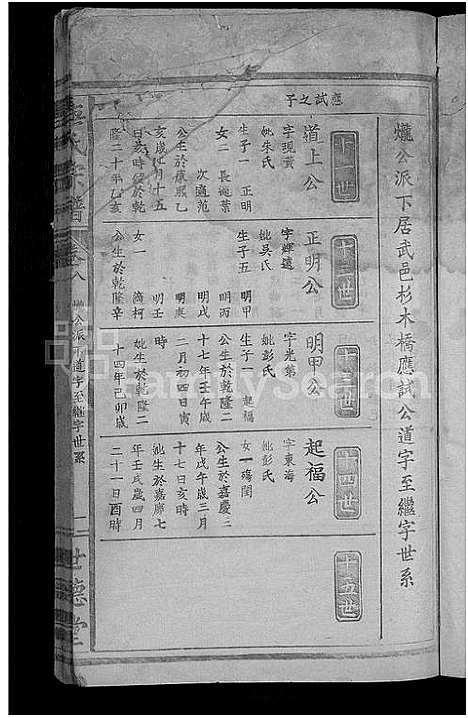 爔公派下居武邑杉木橋應試公道字至繼字世系
應試之子
十一世
道上公
字現黃
妣朱氏
生子一 正明
女二 長適葉
次適范
公生於康熙乙
亥歲 月十五
日亥時 於乾
隆二十年乙亥
十二世
正明公
字輝遠
妣吳氏
生子五 明甲
明丙
明戊
明庚
明壬
女一 適柯
公生於乾隆辛
十三世
明甲公
字光第
妣彭氏
生子一 起福
公生於乾隆二
十七年壬午歲
二月初四日寅
時
妣生於乾隆二
十四年己卯歲
十四世
起福公
字東海
妣彭氏
女一 瑒閏
公生於嘉慶三
年戊午歲三月
十七日亥時
妣生於嘉慶七
年壬戌歲四月
二十一日酉時
十五世
氏宗譜
卷八
公派下道字至繼字世系
世德堂
FamilySearch